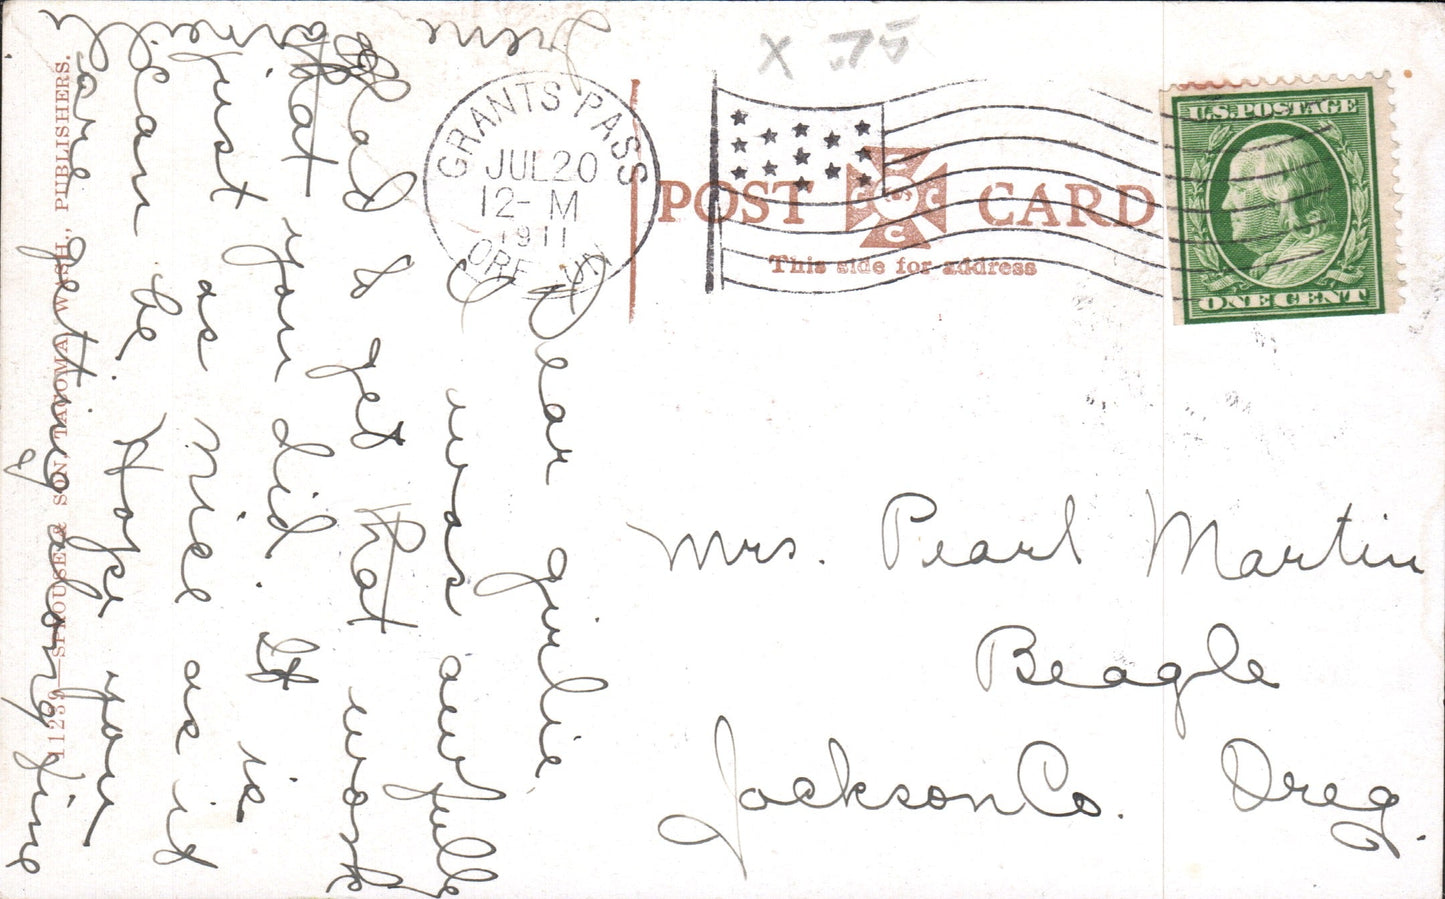 X .75
GRANTS PASS
JUL 20
12-M
1911
U.S. POSTAGE
ONE CENT
POST CARD
This side for address
Mrs. Pearl Martin
Beagle
Jackson Co. Oreg.
Dear girlie
I was awfully
Glad to get that work
that you did. It is
just as nice as it
can be. Hope you
are getting along fine
Irene
11239—SPROUSE & SON, TACOMA, WASH., PUBLISHERS.